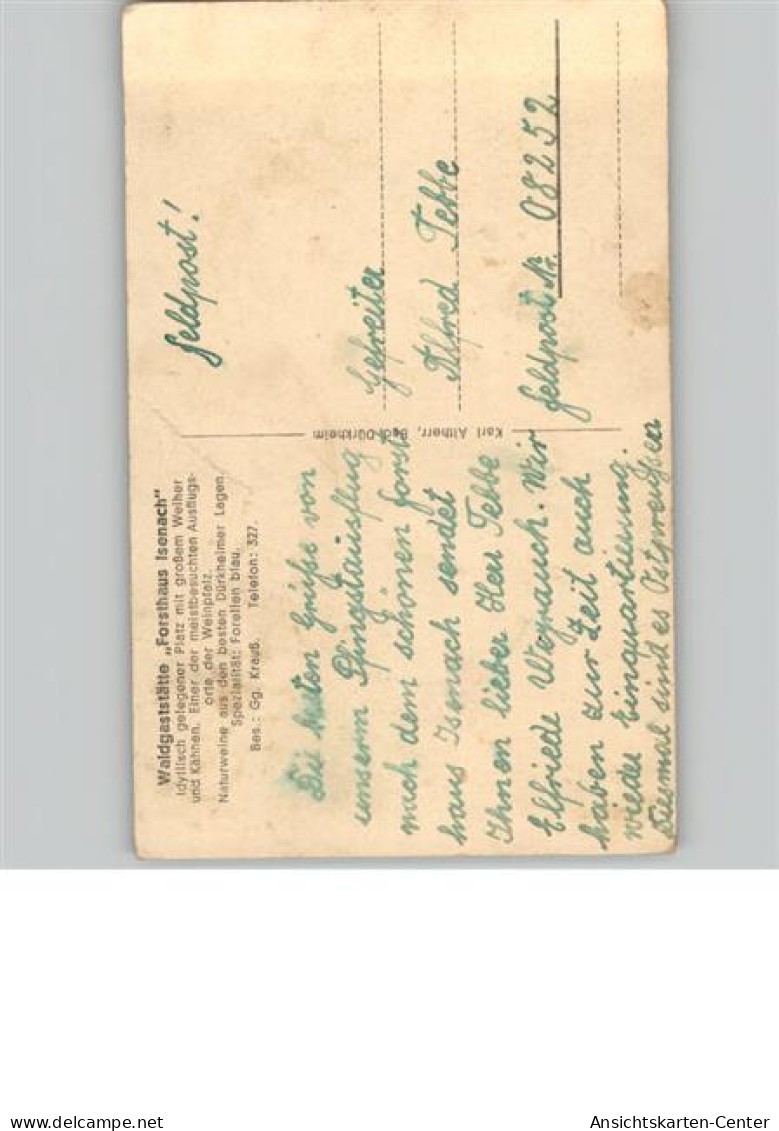 Waldgaststätte „Forsthaus Isenach"
Idyllisch gelegener Platz mit großem Weiher
und Kähnen. Einer der meistbesuchten Ausflugs-
orte der Weinpfalz.
Naturweine aus den besten Dürkheimer Lagen
Spezialität: Forellen blau.
Bes.: Gg. Krauß. Telefon: 327.
Die besten Grüße von
unserm Pfingstausflug
nach dem schönen Forst
haus Isenach sendet
Ihnen lieber Herr Tebbe
Elfriede Weyrauch. Wir
haben zur Zeit auch
wieder Einquartierung.
Diesmal sind es Ostpreußen
Karl Altherr, Bad Dürkheim
Feldpost!
Gefreiter
Alfred Tebbe
Feldpost Nr. 08252
delcampe.net
Ansichtskarten-Center